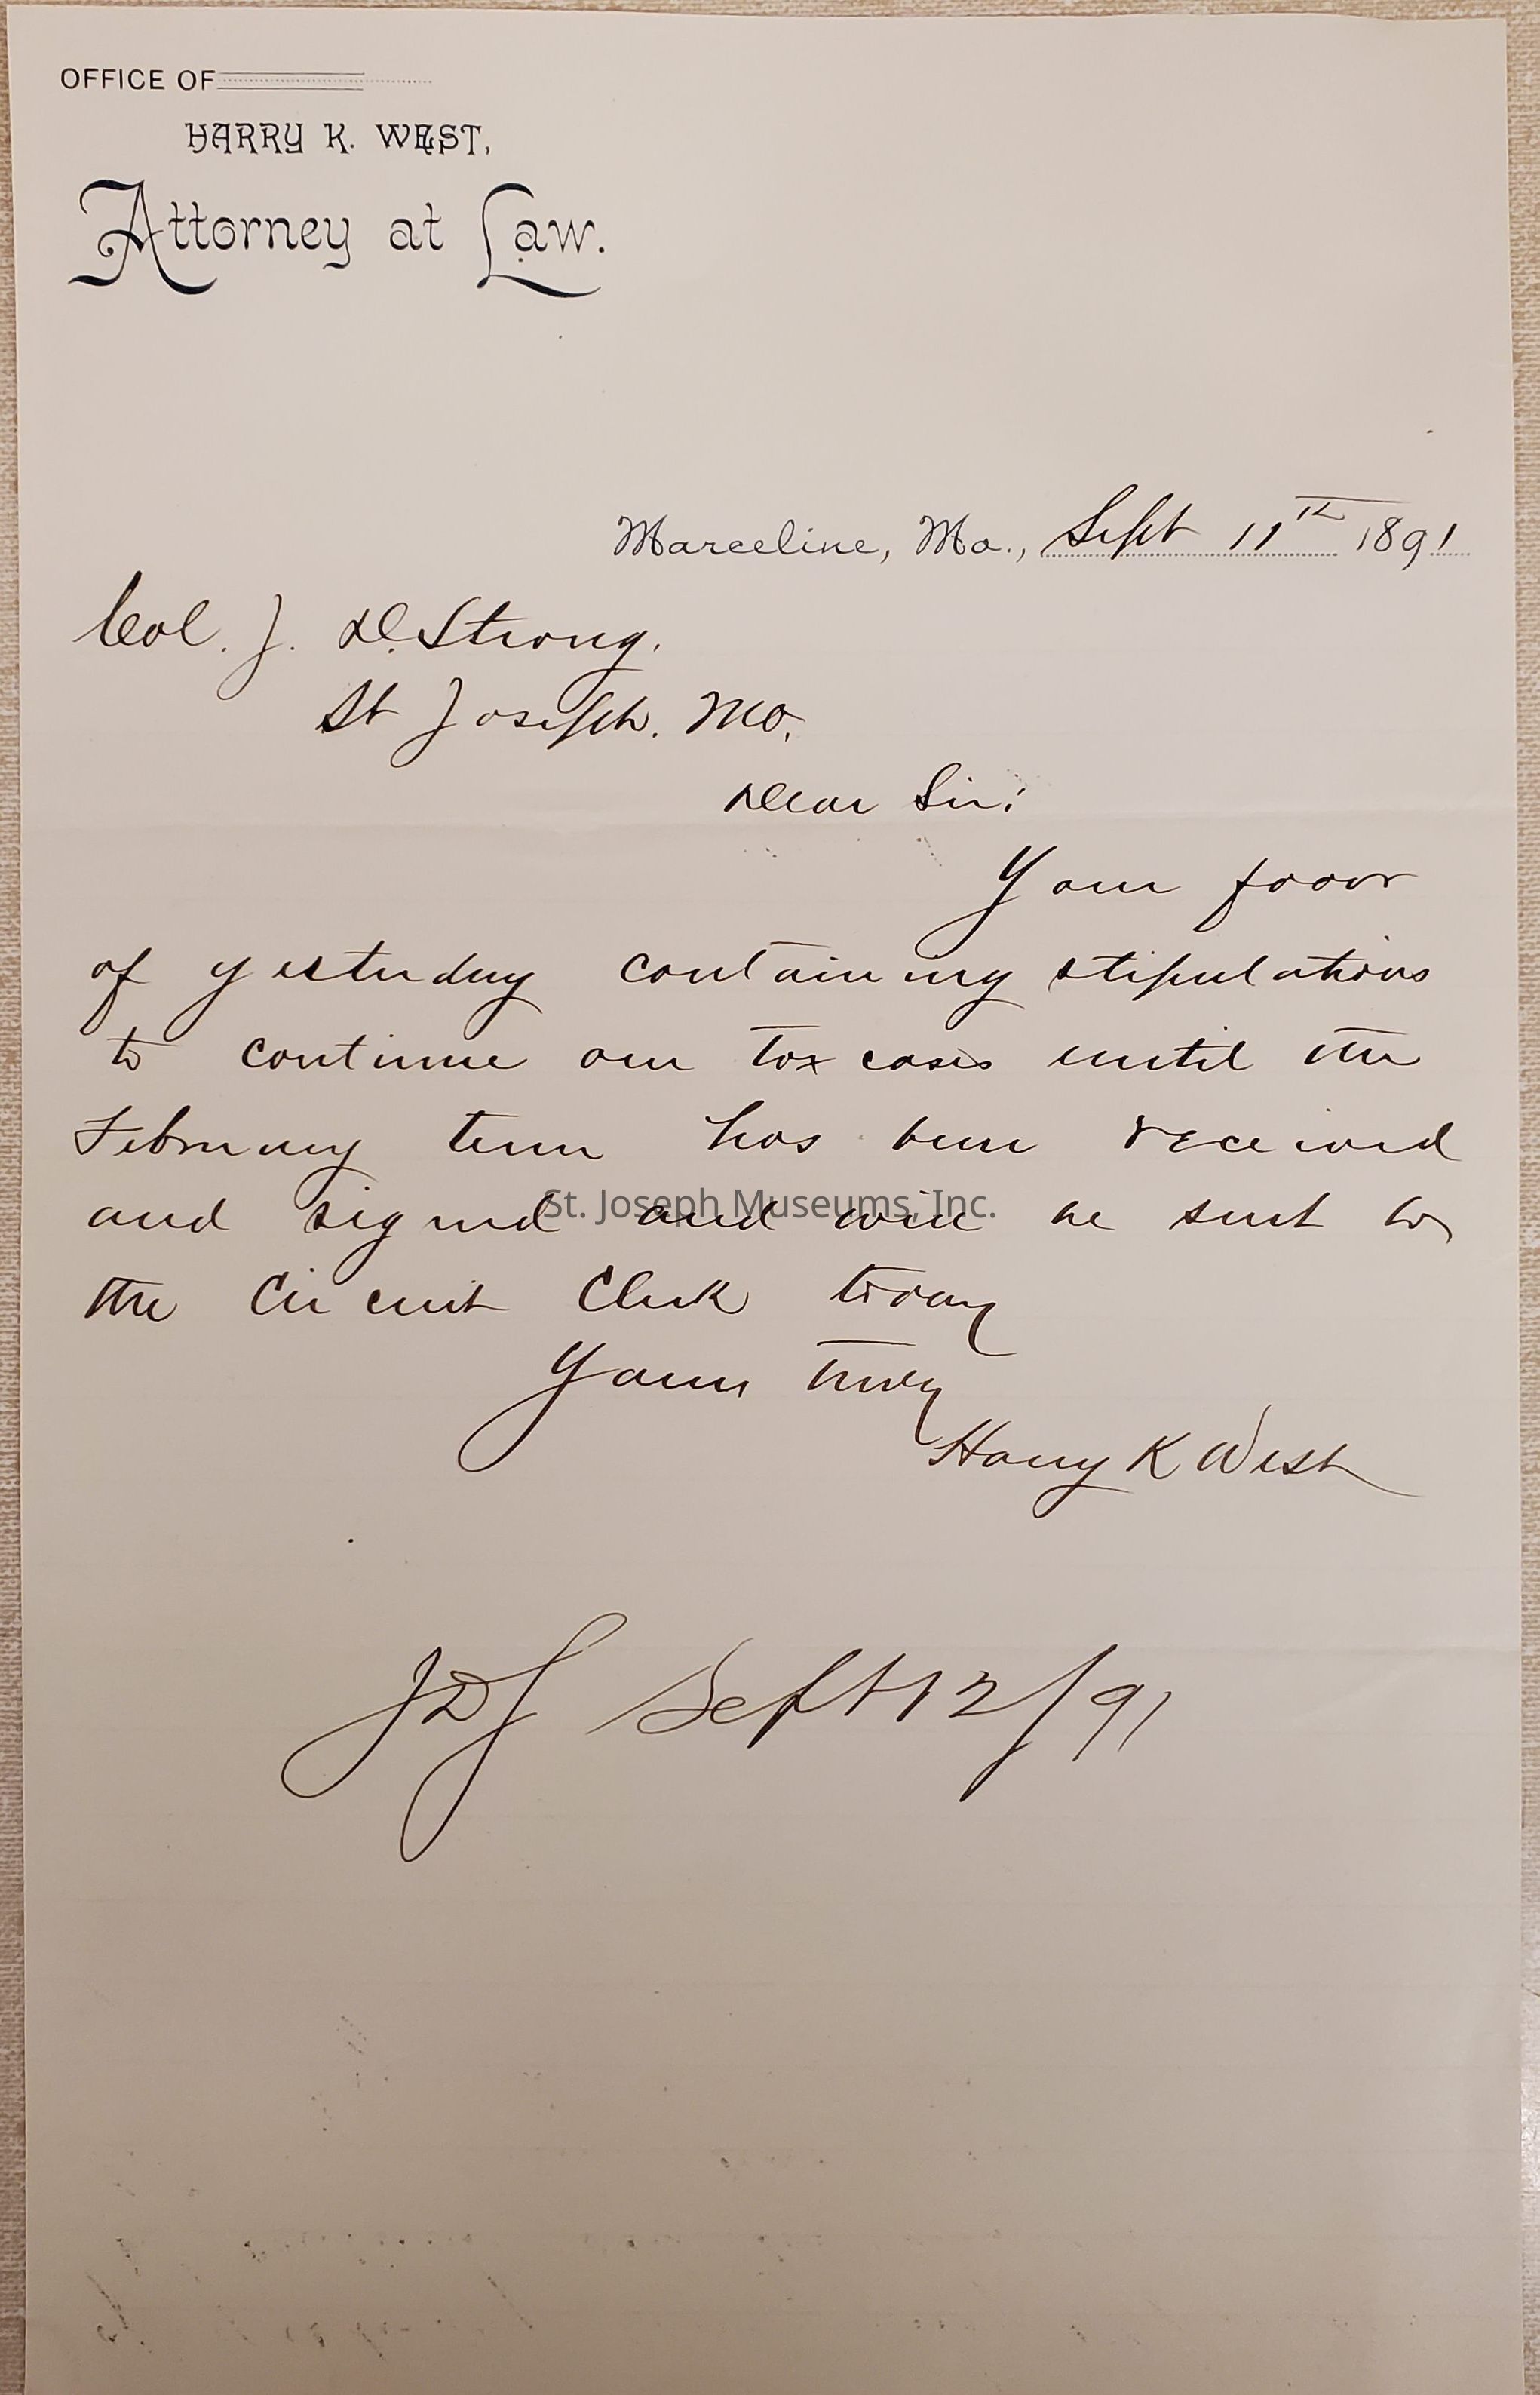 OFFICE OF
HARRY K. WEST,
Attorney at Law.
Marceline, Mo., Sept 11th 1891
Col. J. D. Strong.
St Joseph. Mo.
Dear Sir:
Your favor
of yesterday containing stipulations
to continue our tax cases until the
February term has been received
and signed and will be sent to
St. Joseph Museums, Inc.
the Circuit Clerk today
Yours truly
Harry K West
JDS Sept 12/91